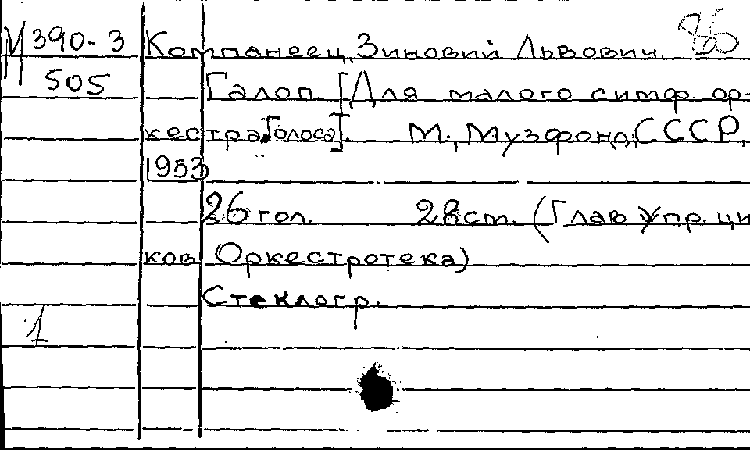 М 390-3 Компанеец, Зиновий Львович 86
505 Галоп [Для малого симф. ор-
кестра. Голоса]. М., Музфонд СССР,
1953
26 гол. 28 см. (Глав. упр. цир
ков. Оркестротека)
Стеклогр.
1